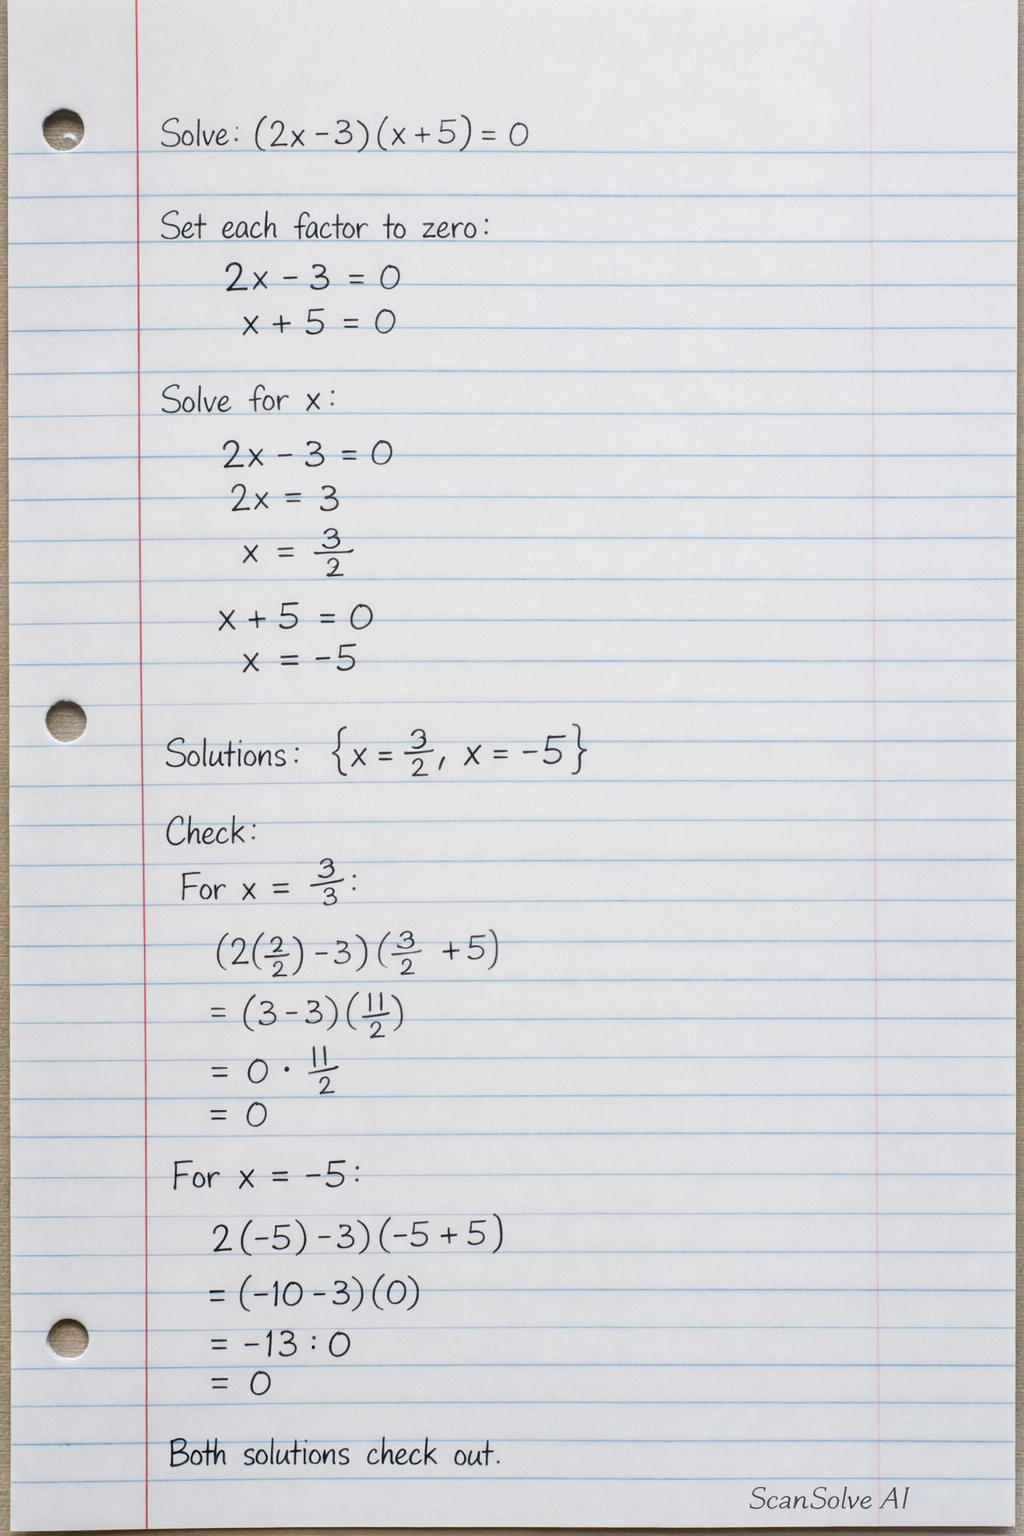 Solve: (2x-3)(x+5) = 0
Set each factor to zero:
2x - 3 = 0
x + 5 = 0
Solve for x:
2x - 3 = 0
2x = 3
x = 3/2
x + 5 = 0
x = -5
Solutions: {x = 3/2, x = -5}
Check:
For x = 3/3:
(2(2/2) - 3)(3/2 + 5)
= (3 - 3)(11/2)
= 0 · 11/2
= 0
For x = -5:
2(-5) - 3)(-5 + 5)
= (-10 - 3)(0)
= -13 : 0
= 0
Both solutions check out.
ScanSolve AI